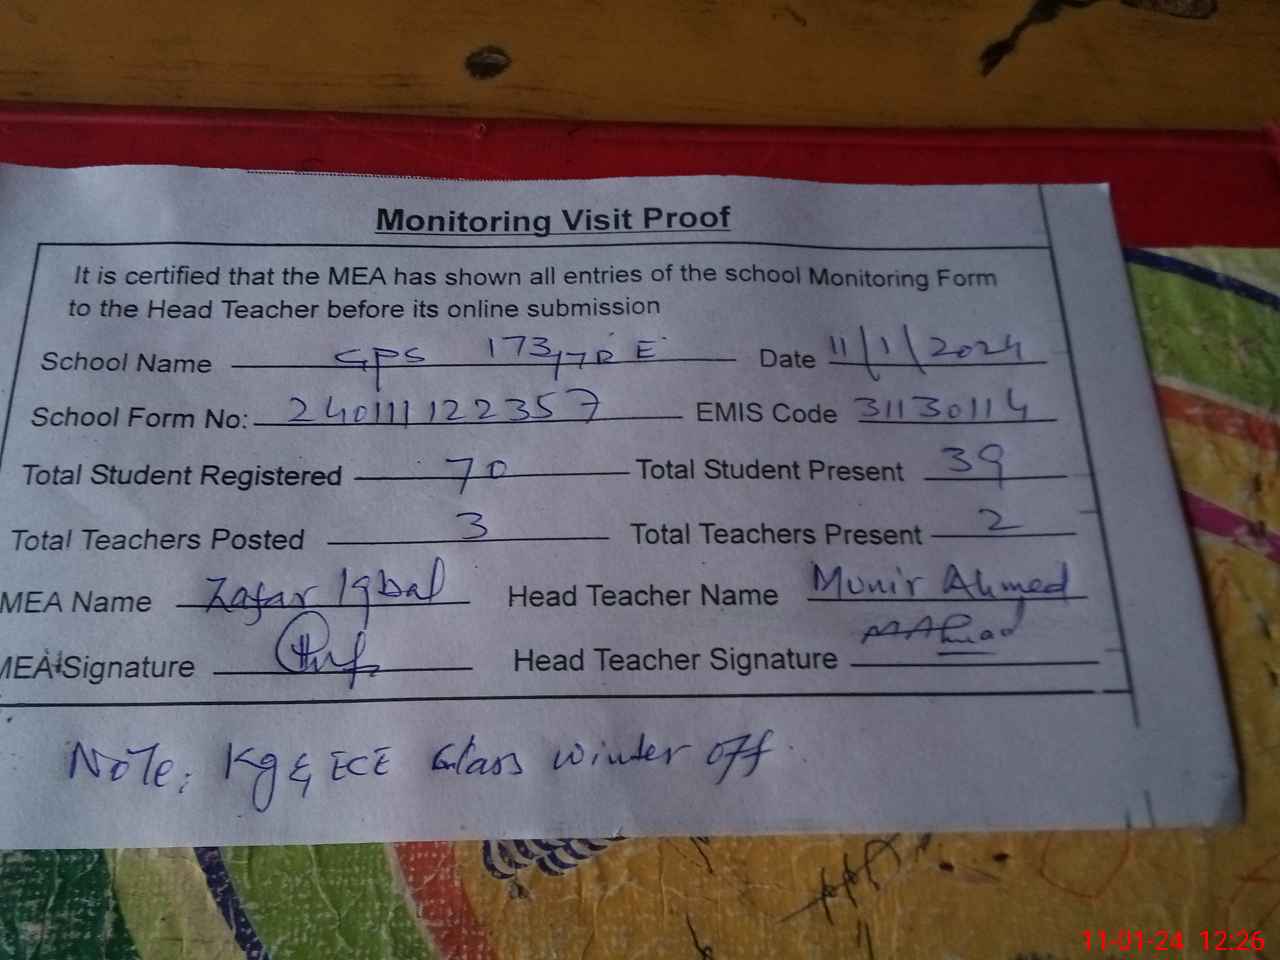 Monitoring Visit Proof
It is certified that the MEA has shown all entries of the school Monitoring Form
to the Head Teacher before its online submission
School Name GPS 173/7R E Date 11/1/2024
School Form No: 240111122357 EMIS Code 31130114
Total Student Registered 70 Total Student Present 39
Total Teachers Posted 3 Total Teachers Present 2
MEA Name Zafar Iqbal Head Teacher Name Munir Ahmed
MEA Signature Head Teacher Signature MAhmad
Note: Kg & ECE Class winter off.
11-01-24 12:26